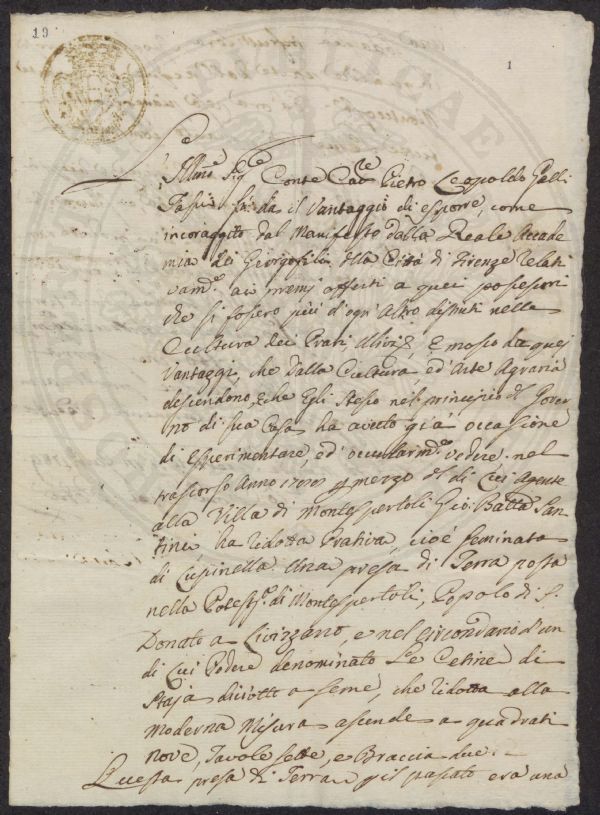 19
1
Ill.mo Sig.e Conte Cav.re Pietro Leopoldo Galli
Tassi fà da il Vantaggio di esporre, come
incoraggito dal Manifesto dalla Reale Accade
mia dei Giorgofili della Città di Firenze relati
vam.e ai premj offerti a quei possessori
che si fossero più d'ogn'altro distinti nella
Cultura dei Prati, E mosso da quei
Vantaggi, che dalla Cultura, ed'Arte Agraria
descendono, e che Egli stesso nel principio di Gover
no di sua Casa ha avuto già occasione
di esperimentare, ed' occularm.e vedere nel
trascorso Anno p mezzo di di Lui Agente
alla Villa di Montespertoli Gio: Batta San
tini ha ridotta Prativa, cioè seminata
di Lupinella Una presa di Terra posta
nella Potest.a di Montespertoli, Popolo di S.
Donato a Livizzano, e nel circondario d'un
di Lui Podere denominato Le Cetine di
Staja diciotto a seme, che ridotta alla
Moderna Misura ascende a quadrati
nove, Tavole sette, e Braccia due
Questa presa di Terra p il passato era una